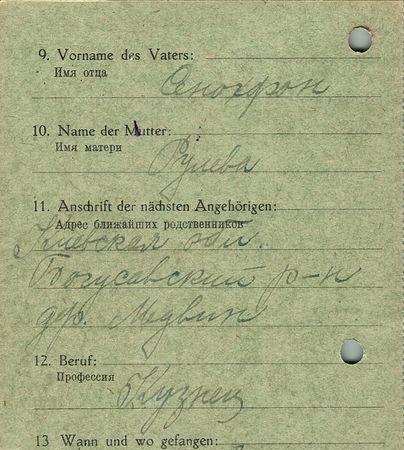 9. Vorname des Vaters:
Имя отца
Сенофон
10. Name der Mutter:
Имя матери
Рулева
11. Anschrift der nächsten Angehörigen:
Адрес ближайших родственников
Киевская обл.
Богуславский р-н
др. Медвин
12. Beruf:
Профессия
Кузнец
13 Wann und wo gefangen: